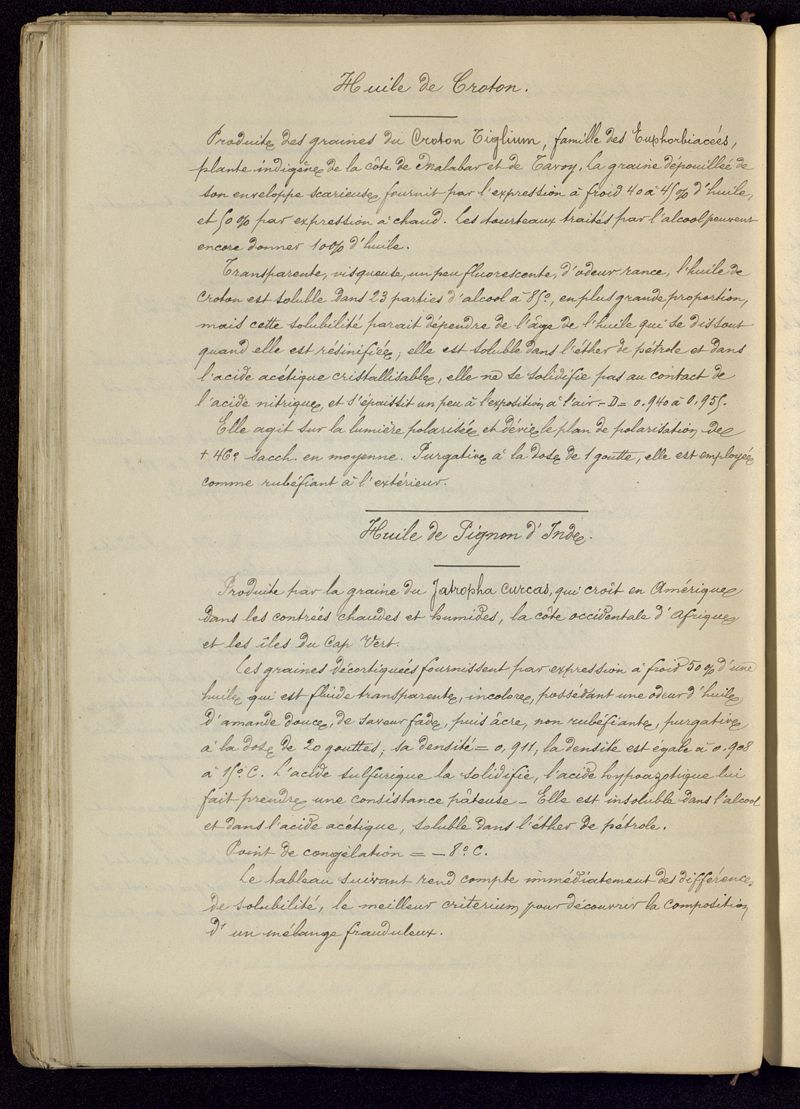 Huile de Croton.
Produite des graines du Croton Tiglium, famille des Euphorbiacées,
plante indigène de la côte de Malabar et de Tavoy. La graine dépouillée de
son enveloppe scarieuse fournit par l'expression à froid 40 à 45% d'huile,
et 50% par expression à chaud. Les tourteaux traités par l'alcool peuvent
encore donner 10% d'huile.
Transparente, visqueuse, un peu fluorescente, d'odeur rance, l'huile de
Croton est soluble dans 23 parties d'alcool à 85°, en plus grande proportion,
mais cette solubilité parait dépendre de l'âge de l'huile qui se dissout
quand elle est résinifiée; elle est soluble dans l'éther de pétrole et dans
l'acide acétique cristallisable, elle ne se solidifie pas au contact de
l'acide nitrique, et s'épaissit un peu à l'exposition à l'air - D = 0.940 à 0.955.
Elle agit sur la lumière polarisée et dévie le plan de polarisation de
+ 46° sacch. en moyenne. Purgative à la dose de 1 goutte, elle est employée
comme rubéfiant à l'extérieur.
Huile de Pignon d'Inde.
Produite par la graine du Jatropha curcas, qui croît en Amérique
dans les contrées chaudes et humides, la côte occidentale d'Afrique
et les îles du Cap Vert.
Les graines décortiquées fournissent par expression à froid 50% d'une
huile qui est fluide transparente, incolore, possédant une odeur d'huile
d'amande douce, de saveur fade, puis âcre, non rubéfiante, purgative
à la dose de 20 gouttes; sa densité = 0,911; la densité est égale à 0.908
à 15° C. L'acide sulfurique la solidifie, l'acide hypoazotique lui
fait prendre une consistance pâteuse - Elle est insoluble dans l'alcool
et dans l'acide acétique, soluble dans l'éther de pétrole.
Point de congélation = - 8° C.
Le tableau suivant rend compte immédiatement des différences
de solubilité, le meilleur criterium pour découvrir la composition
d'un mélange frauduleux.